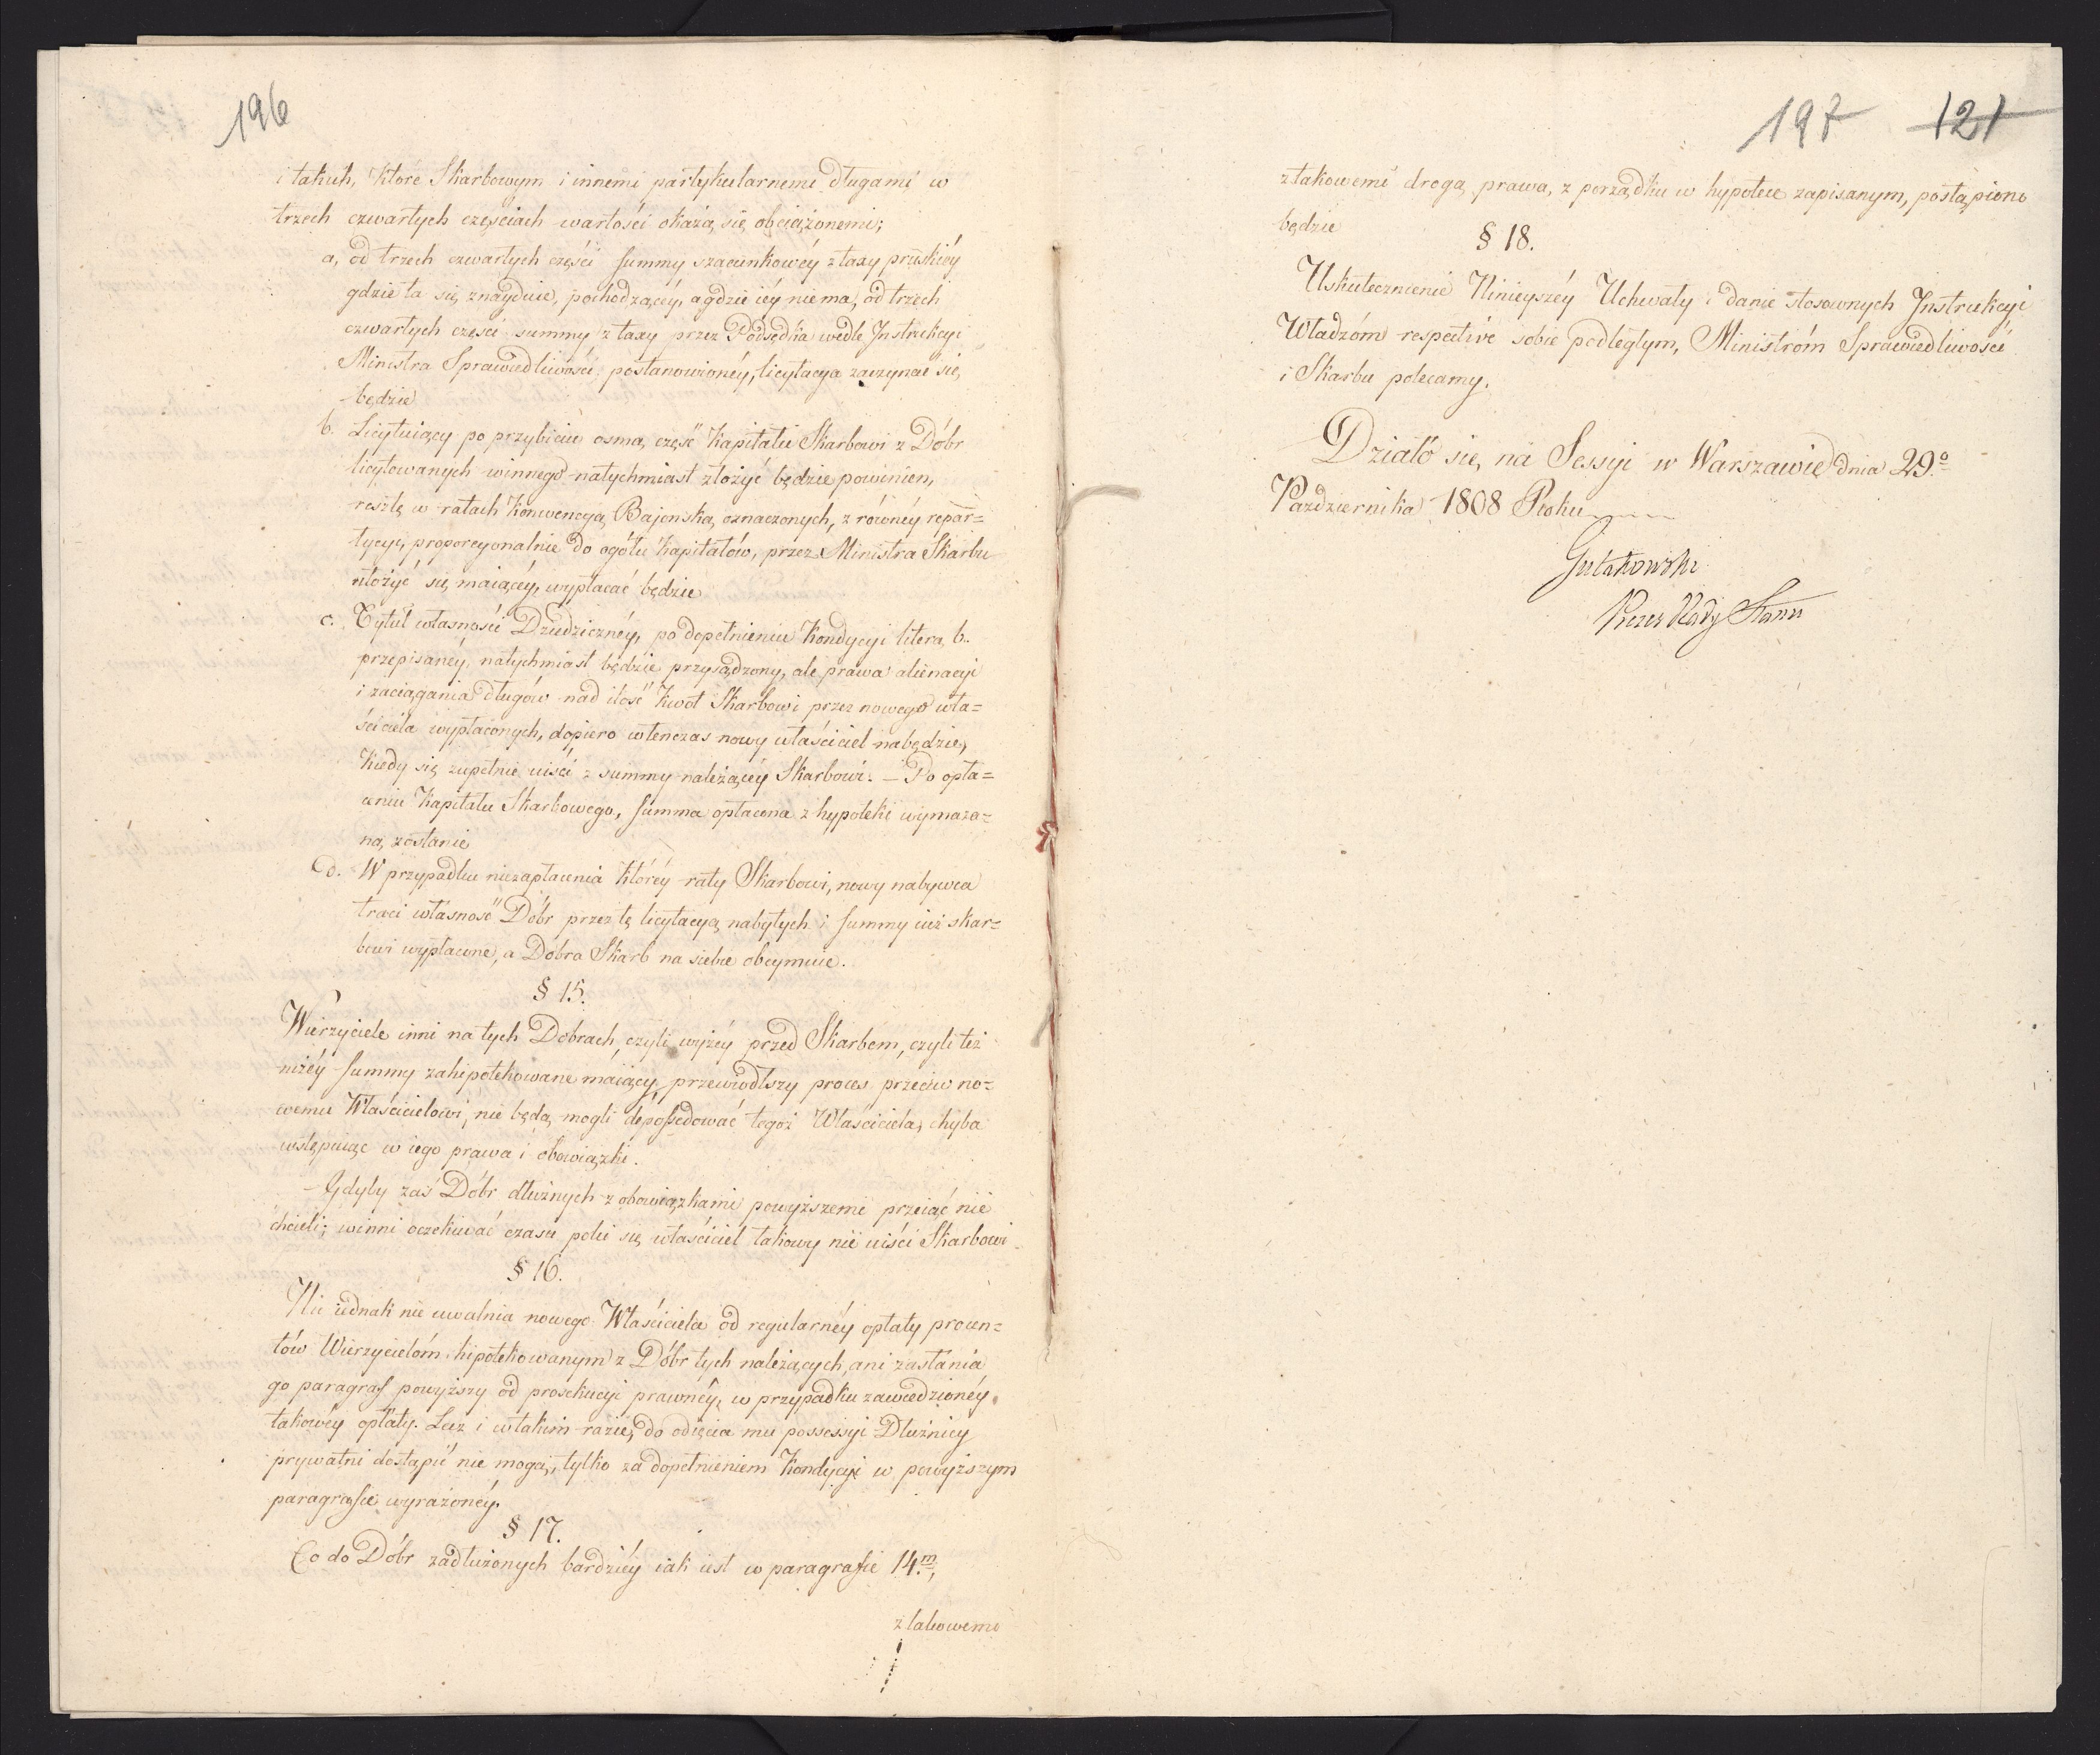 196
i takich, które Skarbowym i innemi partykularnemi długami w
trzech czwartych częściach wartości okażą się obciążonemi;
a, od trzech czwartych części summy szacunkowéy z taxy pruskiéy
gdzie ta się znayduie, pochodzącéy, a gdzie iéy niema, od trzech
czwartych części summy z taxy przez Podsędka wedle Instrukcyi
Ministra Sprawiedliwości postanowionéy, licytacya zaczynać się
będzie
b. Licytuiący po przybiciu osmą część Kapitału Skarbowi z Dóbr
licytowanych winnego natychmiast złożyć będzie powinien,
resztę w ratach Konwencyą Bajonską oznaczonych, z równéy repar=
tycyi, proporcyonalnie do ogółu Kapitałów, przez Ministra Skarbu
ułożyć się maiącéy, wypłacać będzie
c. Tytuł własności Dziedzicznéy, po dopełnieniu Kondycyi litera b.
przepisanéy, natychmiast będzie przysądzony, ale prawa alienacyi
i zaciągania długów nad ilość kwot Skarbowi przez nowego wła=
ściciela wypłaconych, dopiero wtenczas nowy właściciel nabędzie,
kiedy się zupełnie uiści z summy należącéy Skarbowi. – Po opła=
ceniu Kapitału Skarbowego, summa opłacona z hypoteki wymaza=
ną zostanie
d. W przypadku niezapłacenia któréy raty Skarbowi, nowy nabywca
traci własność Dóbr przez tę licytacyą nabytych i summy iuż skar=
bowi wypłacone, a Dobra Skarb na siebie obeymuie.
§ 15.
Wierzyciele inni na tych Dobrach, czyli wyżéy przed Skarbem, czyli też
niżéy summy zahipotekowane maiący, przewiódłszy proces przeciw no=
wemu Właścicielowi, nie będą mogli depossedować tegoż Właściciela, chyba
wstępuiąc w iego prawa i obowiązki.
Gdyby zaś Dóbr dłużnych z obowiązkami powyższemi przeiąć nie
chcieli; winni oczekiwać czasu póki się właściciel takowy nie uiści Skarbowi
§ 16.
Nic iednak nie uwalnia nowego Właściciela od regularnéy opłaty procen=
tów Wierzycielóm hipotekowanym z Dóbr tych należących, ani zasłania
go paragraf powyższy od prosekucyi prawnéy, w przypadku zawiedzionéy
takowéy opłaty. Lecz i w takim razie, do odięcia mu possessyi Dłużnicy
prywatni dostąpić nie mogą, tylko za dopełnieniem Kondycyi w powyższym
paragrafie wyrażonéy.
§ 17.
Co do Dóbr zadłużonych bardziéy iak iest w paragrafie 14.m,
z takowemi
197 121
z takowemi drogą prawa, z porządku w hypotece zapisanym, postąpiono
będzie
§ 18.
Uskutecznienie Ninieyszéy Uchwały i danie stosownych Instrukcyi
Władzóm respective sobie podległym, Ministróm Sprawiedliwości
i Skarbu polecamy.
Działo się na Sessyi w Warszawie dnia 29.o
Października 1808 Roku
Gutakowski
Prezes Rady Stanu